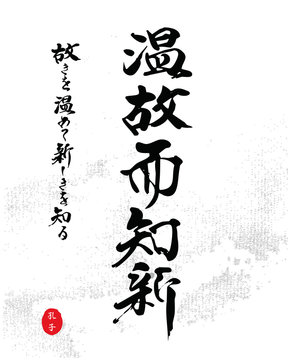 温故而知新
故きを温めて新しきを知る
孔子